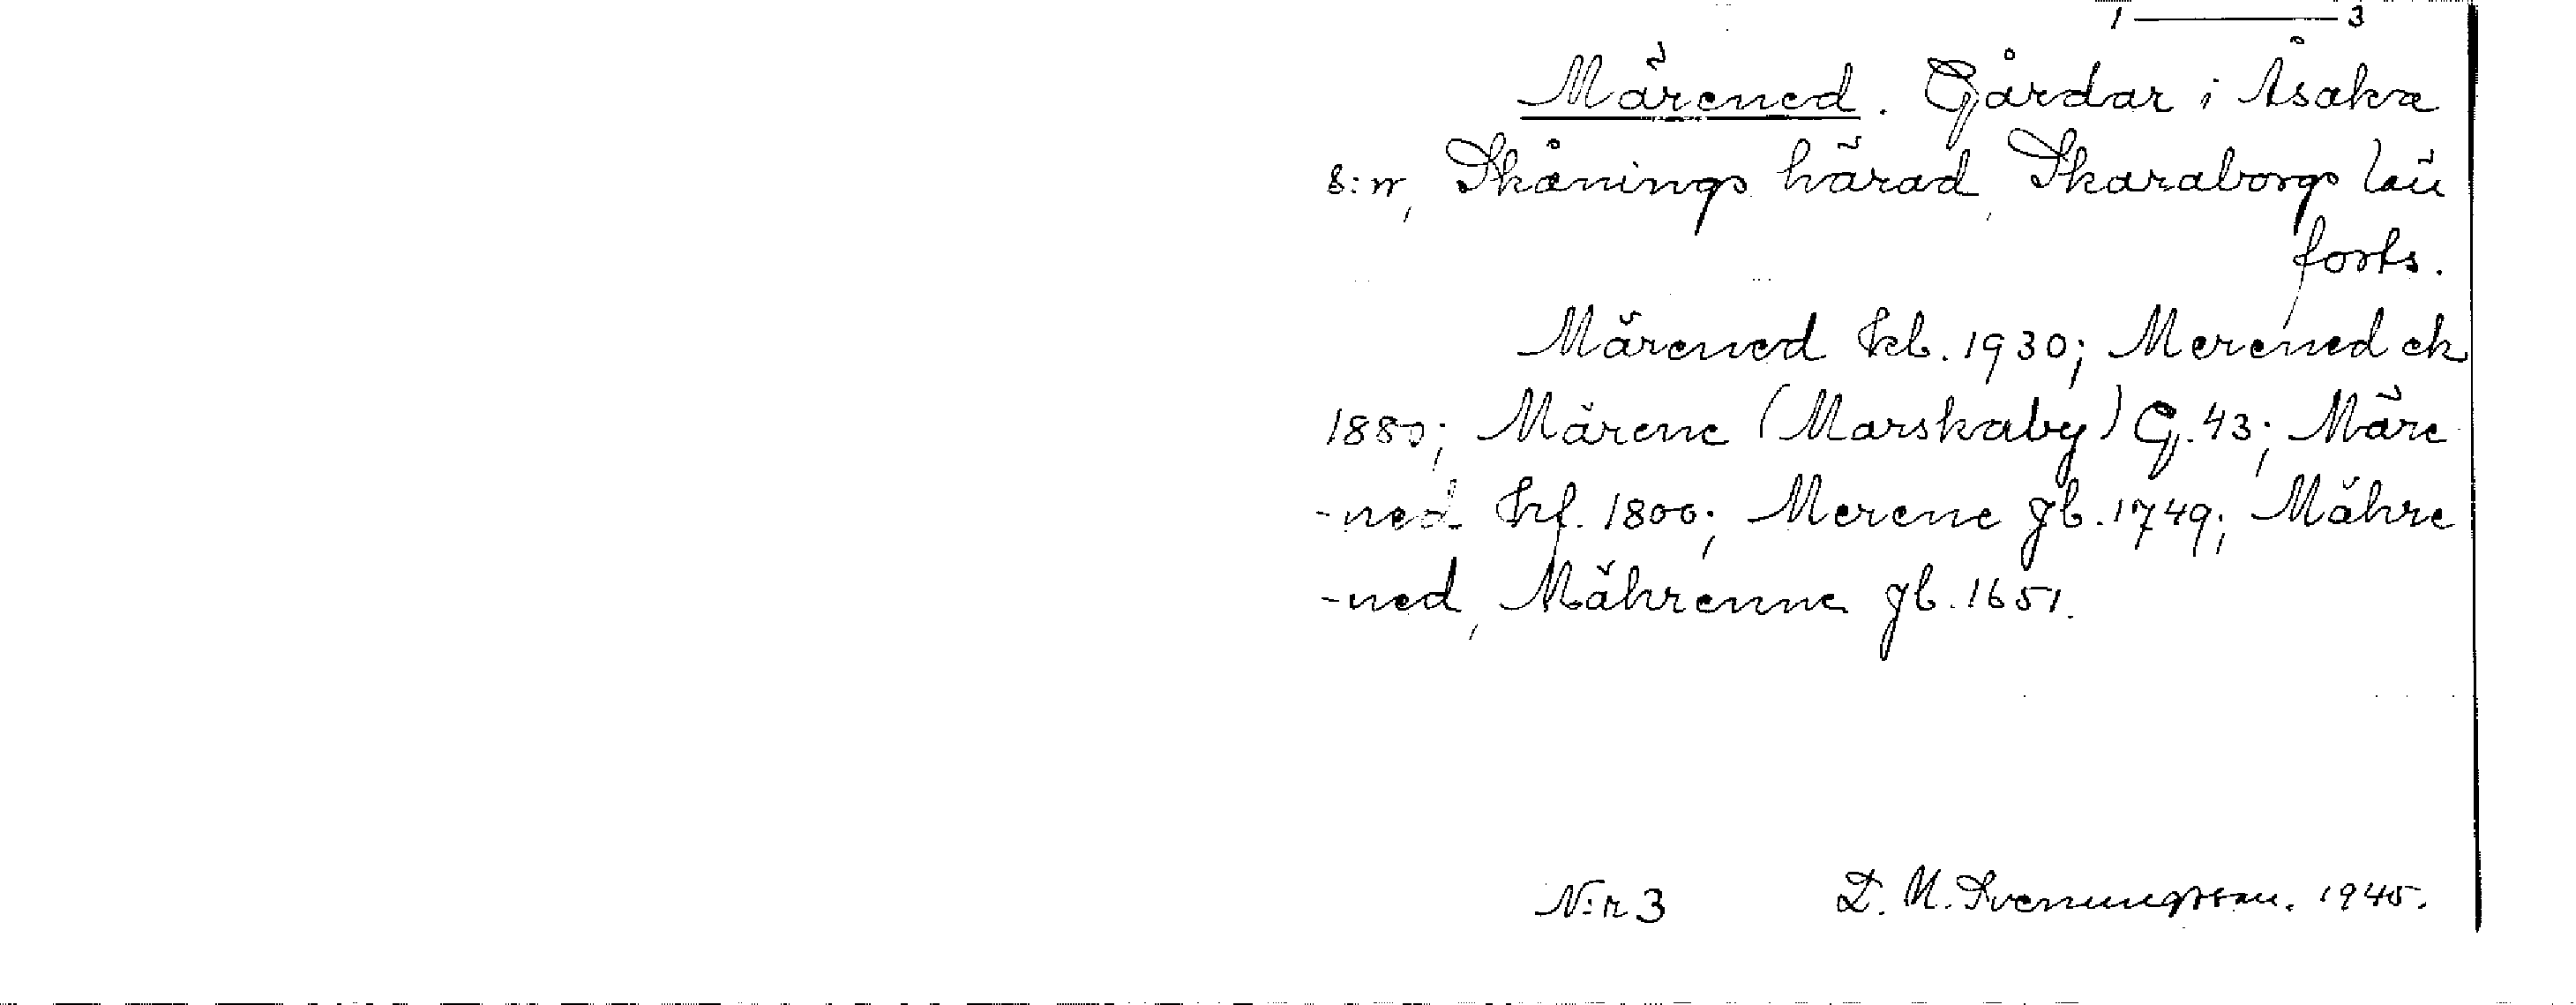 1 ——— 3
Märened. Gårdar i Åsaka
s:n, Skånings härad, Skaraborgs län
forts.
Märened kb. 1930; Merened ek
1880; Märene (Marskaby) G. 43; Märe
-ned kf. 1800; Merene jb. 1749; Mähre
-ned, Mährenne jb. 1651.
N:r 3 D. N. Svenungsson. 1945.